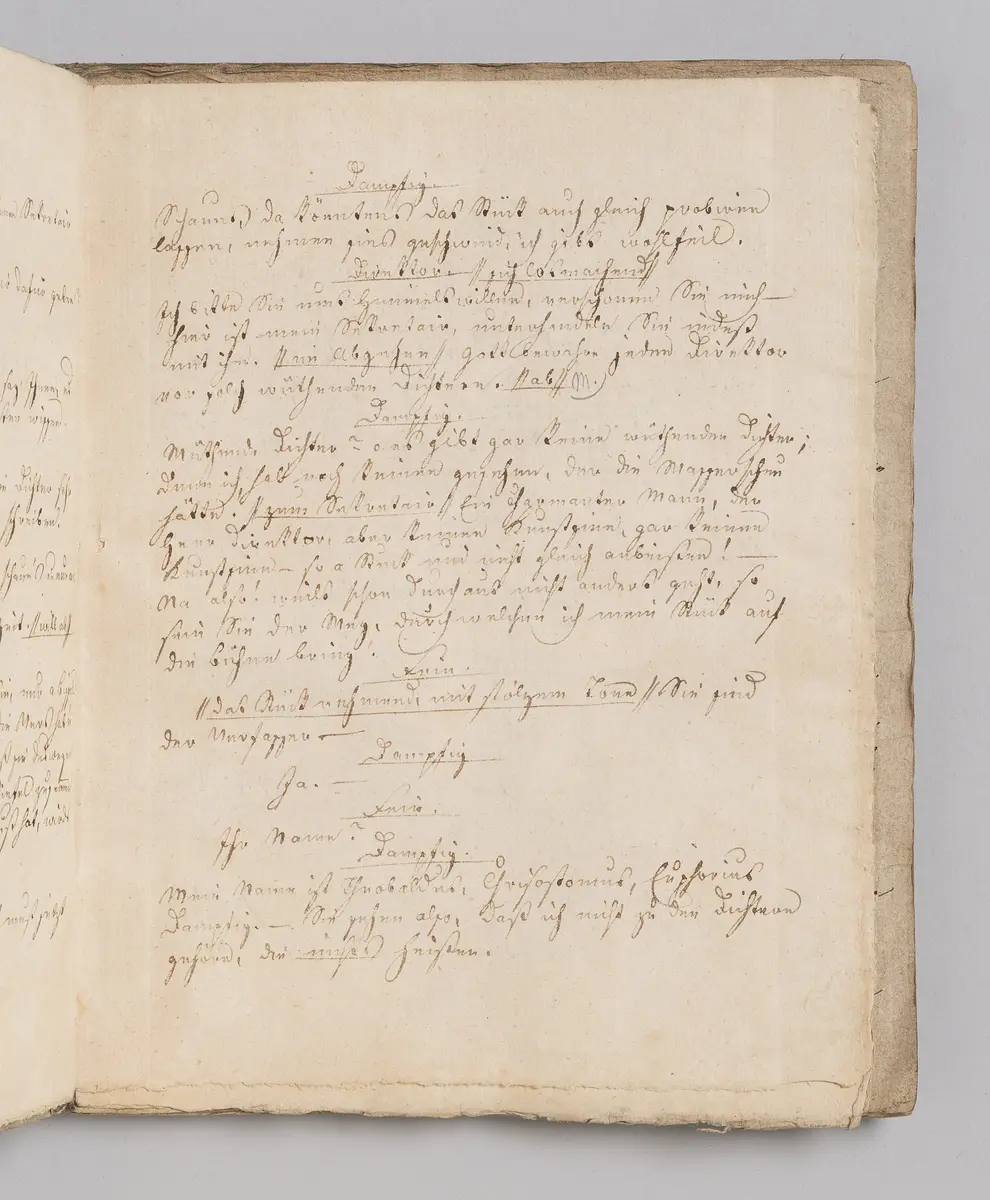 Dampfig.
Schauns, da könntens das Stück auch gleich probiren
lassen, nehmen sies geschwind, ich gibs wohlfeil.
Direktor // sich losmachend //
Ich bitte Sie ums Himmelswillen, verschonen Sie mich —
hier ist mein Sekretair, unterhandeln Sie indeß
mit ihm. // im Abgehen // Gott bewahre jeden Direktor
vor solch wüthenden Dichtern. // ab // M.)
Dampfig.
Wüthende Dichter? o es gibt gar keine wüthenden Dichter;
denn ich hab noch keinen gesehen, der die Wasserscheu
hätte. // zum Sekretair // Ein scharmanter Mann, der
Herr Direktor, aber keinen Kunstsinn, gar keinen
Kunstsinn — so a Stück und nicht gleich anbeissen! —
Na also! weils schon durchaus nicht anders geht, so
sein Sie der Weg, durch welchen ich mein Stück auf
die Bühne bring'.
Fein.
// das Stück nehmend, mit stolzem Tone // Sie sind
der Verfasser —
Dampfig
Ja. —
Fein.
Ihr Name?
Dampfig.
Mein Name ist Theobaldus, Chrisostomus, Euphorius
Dampfig. — Sie sehen also, daß ich nicht zu den Dichtern
gehöre, die nichts heissen.
Sekretair
dafür geben
Dichter
schreiben.
hat, würde